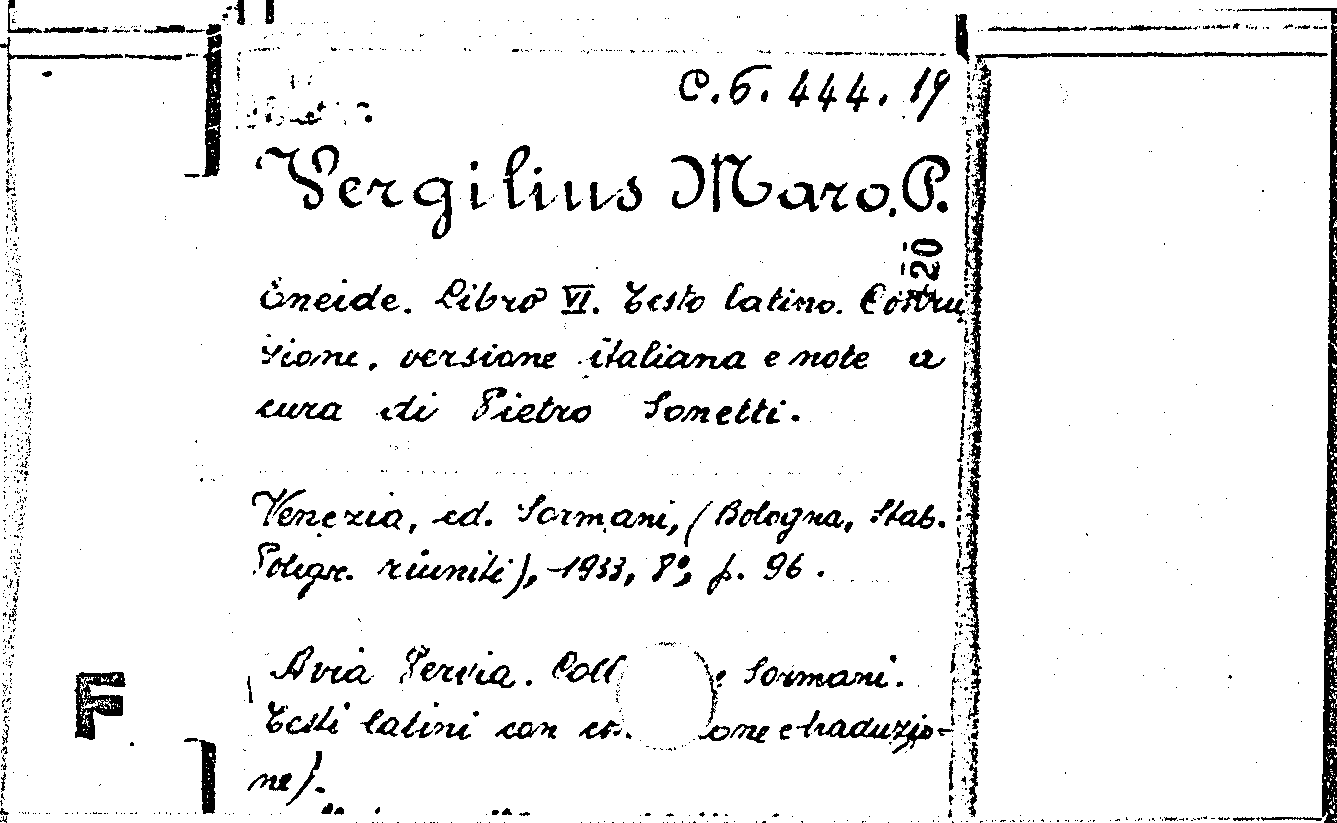 C.6.444.19
Vergilius Maro, P.
420
Eneide. Libro VI. Testo latino. Costru
zione, versione italiana e note a
cura di Pietro Sonetti.
Venezia, ed. Sormani, (Bologna, Stab.
Poligr. riuniti), 1933, 8°, p. 96.
Avia Pervia. Coll e Sormani.
Testi latini con one e traduzio-
ne).
F